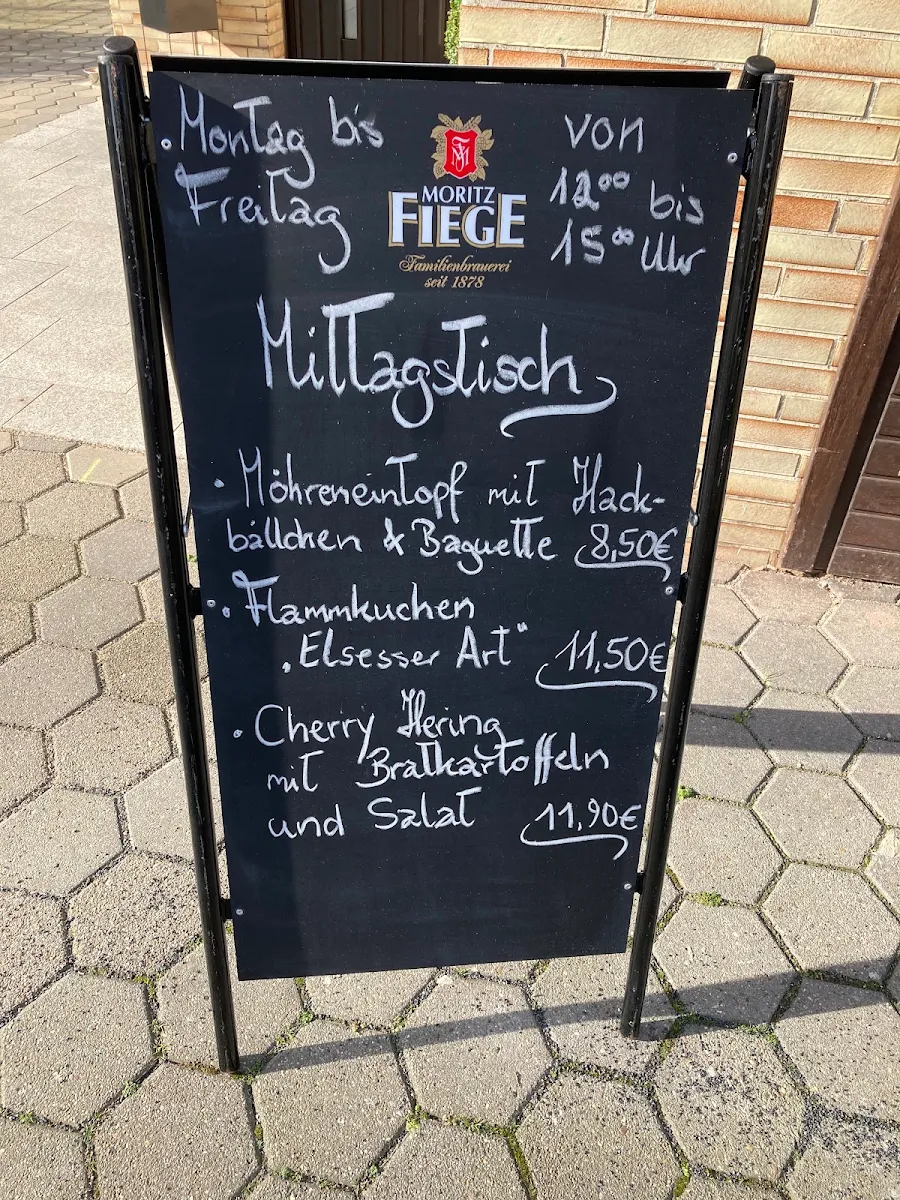 Montag bis
Freitag
MORITZ
FIEGE
Familienbrauerei
seit 1878
von
12⁰⁰ bis
15⁰⁰ Uhr
Mittagstisch
• Möhreneintopf mit Hack-
bällchen & Baguette 8,50€
• Flammkuchen
„Elsesser Art" 11,50€
• Cherry Hering
mit Bratkartoffeln
und Salat 11,90€